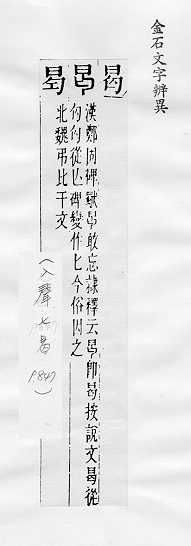 金石文字辨異
曷
漢鄭固碑敢忘隸釋云即曷按說文曷從
匃匃從亾碑變作匕今俗因之
北魏弔比干文
(入聲七曷 P.847)